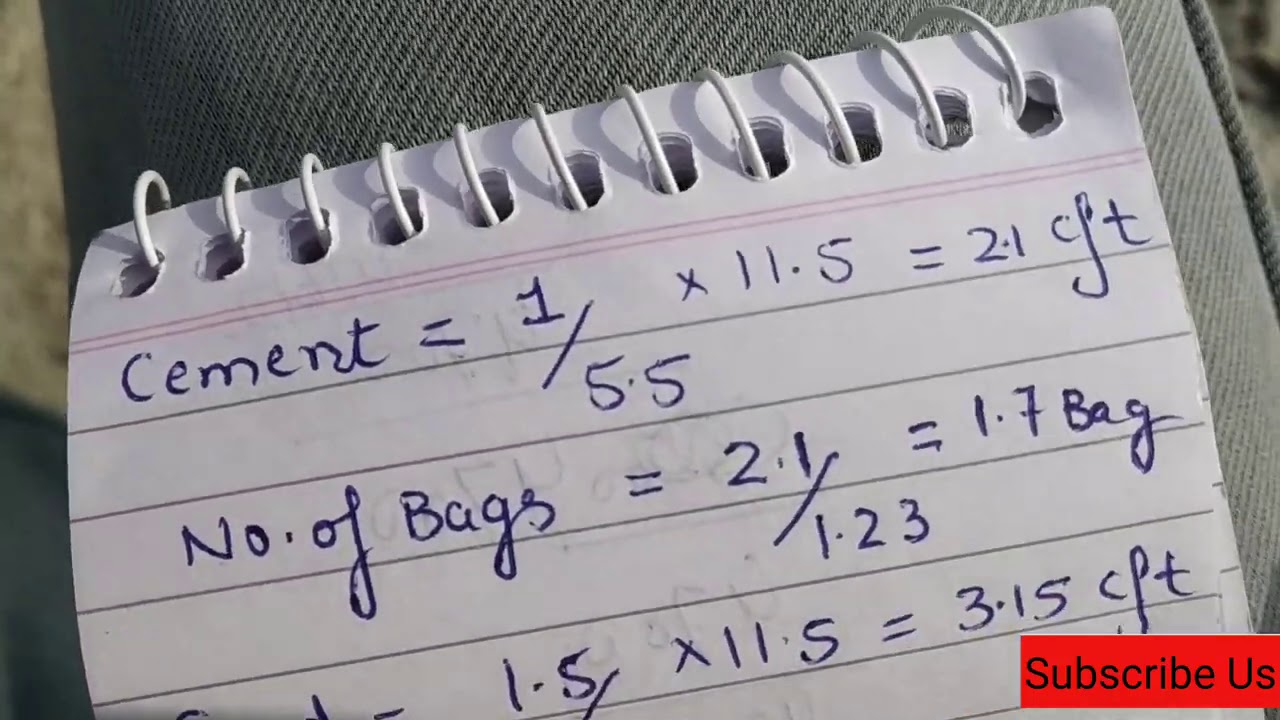 Cement = 1/5.5 × 11.5 = 2.1 cft
No. of Bags = 2.1/1.23 = 1.7 Bag
= 1.5/ × 11.5 = 3.15 cft
Subscribe Us